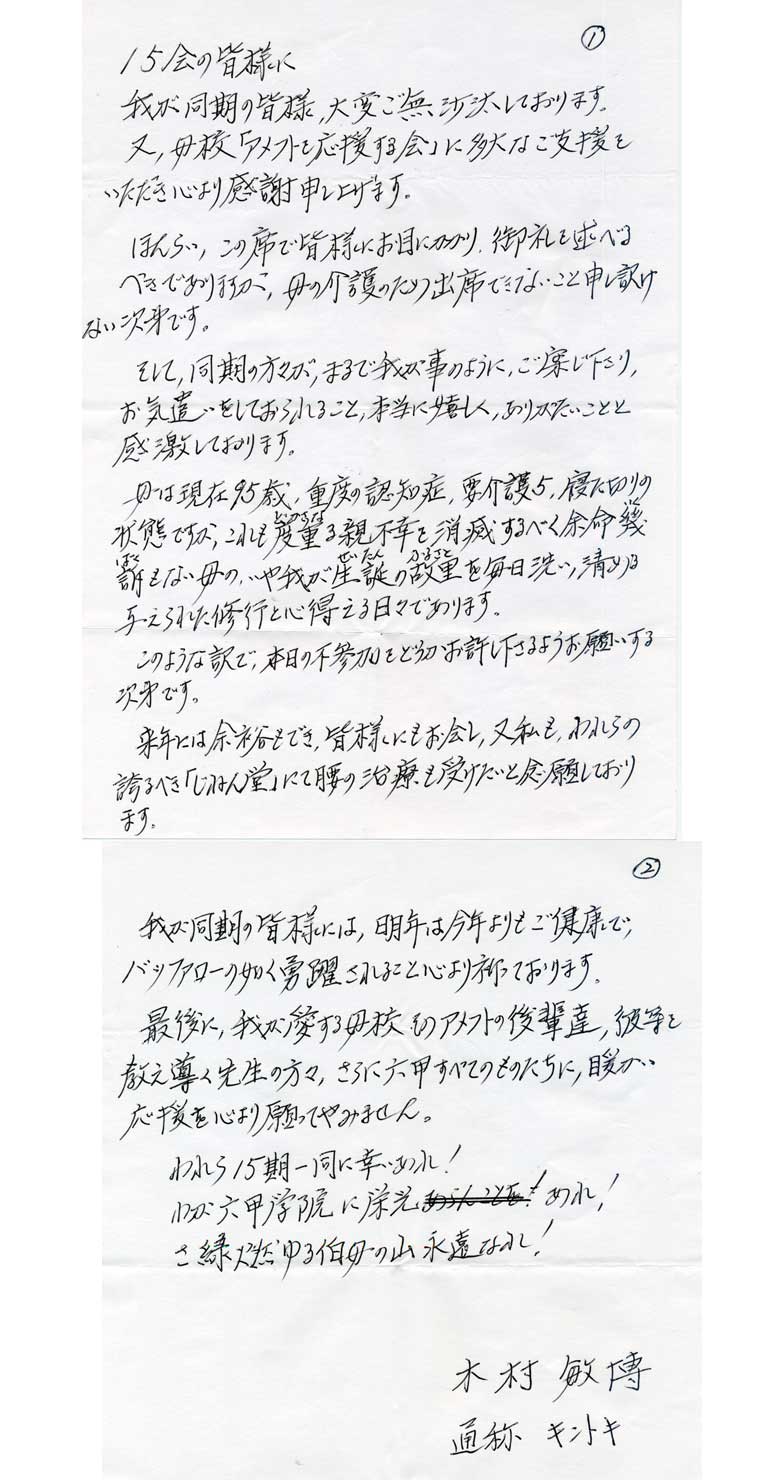 ①
15会の皆様に
我が同期の皆様,大変ご無沙汰しております。
又,母校「アメフトを応援する会」に多大なご支援を
いただき心より感謝申し上げます。
ほんらい,この席で皆様にお目にかかり,御礼を述べる
べきでありますが,母の介護のため出席できないこと申し訳け
ない次第です。
そして,同期の方々が,まるで我が事のように,ご案じ下さり,
お気遣いをしておられること,本当に嬉しく,ありがたいことと
感激しております。
母は現在95歳,重度の認知症,要介護5,寝た切りの
状態ですが,これも度重る親不幸を消滅するべく余命幾
許もない母の,いや我が生誕の故里を毎日洗い清める
与えられた修行と心得える日々であります。
このような訳で,本日の不参加をどうかお許し下さるようお願いする
次第です。
来年には余裕もでき,皆様にもお会し,又私も,われらの
誇るべき「じねん堂」にて腰の治療も受けたいと念願しており
ます。
②
我が同期の皆様には,明年は今年よりもご健康で,
バッファローの如く勇躍されること心より祈っております。
最後に,我が愛する母校そのアメフトの後輩達,彼等を
教え導く先生の方々,さらに六甲すべてのものたちに,暖かい
応援を心より願ってやみません。
われら15期一同に幸いあれ!
わが六甲学院に栄光あれ!
さ緑燃ゆる伯母の山永遠なれ!
木村 敏博
通称 キントキ